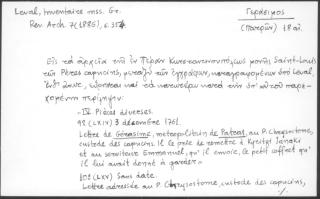 Laval, Inventaire mss. Gr.
Rev. Arch. 7 (1886), σ. 354
Γεράσιμος
(Πατρῶν) 18 αἰ.
Εἰς τὰ ἀρχεῖα τῆς ἐν Πέραν Κωνσταντινουπόλεως μονῆς Saint-Louis
τῶν Pères capucins, μεταξὺ τῶν ἐγγράφων, καταγραφομένων ὑπὸ Laval,
ἐνθ' ἄνωτ., εὕρηται καὶ τὰ κατωτέρω κατὰ τὴν ὑπ' αὐτοῦ παρε-
χομένην περίληψιν:
- IV. Pièces diverses.
99. (LXIV) 3 décembre 1761.
Lettre de Gérasime, métropolitain de Patras, au P. Chrysostome,
custode des capucins. Il le prie de remettre à Kyritzi Janaki
et au serviteur Emmanuel, qu'il envoie, le petit coffret qu'
il lui avait donné à garder.
101 (LXV) Sans date.
Lettre adressée au P. Chrysostome, custode des capucins,